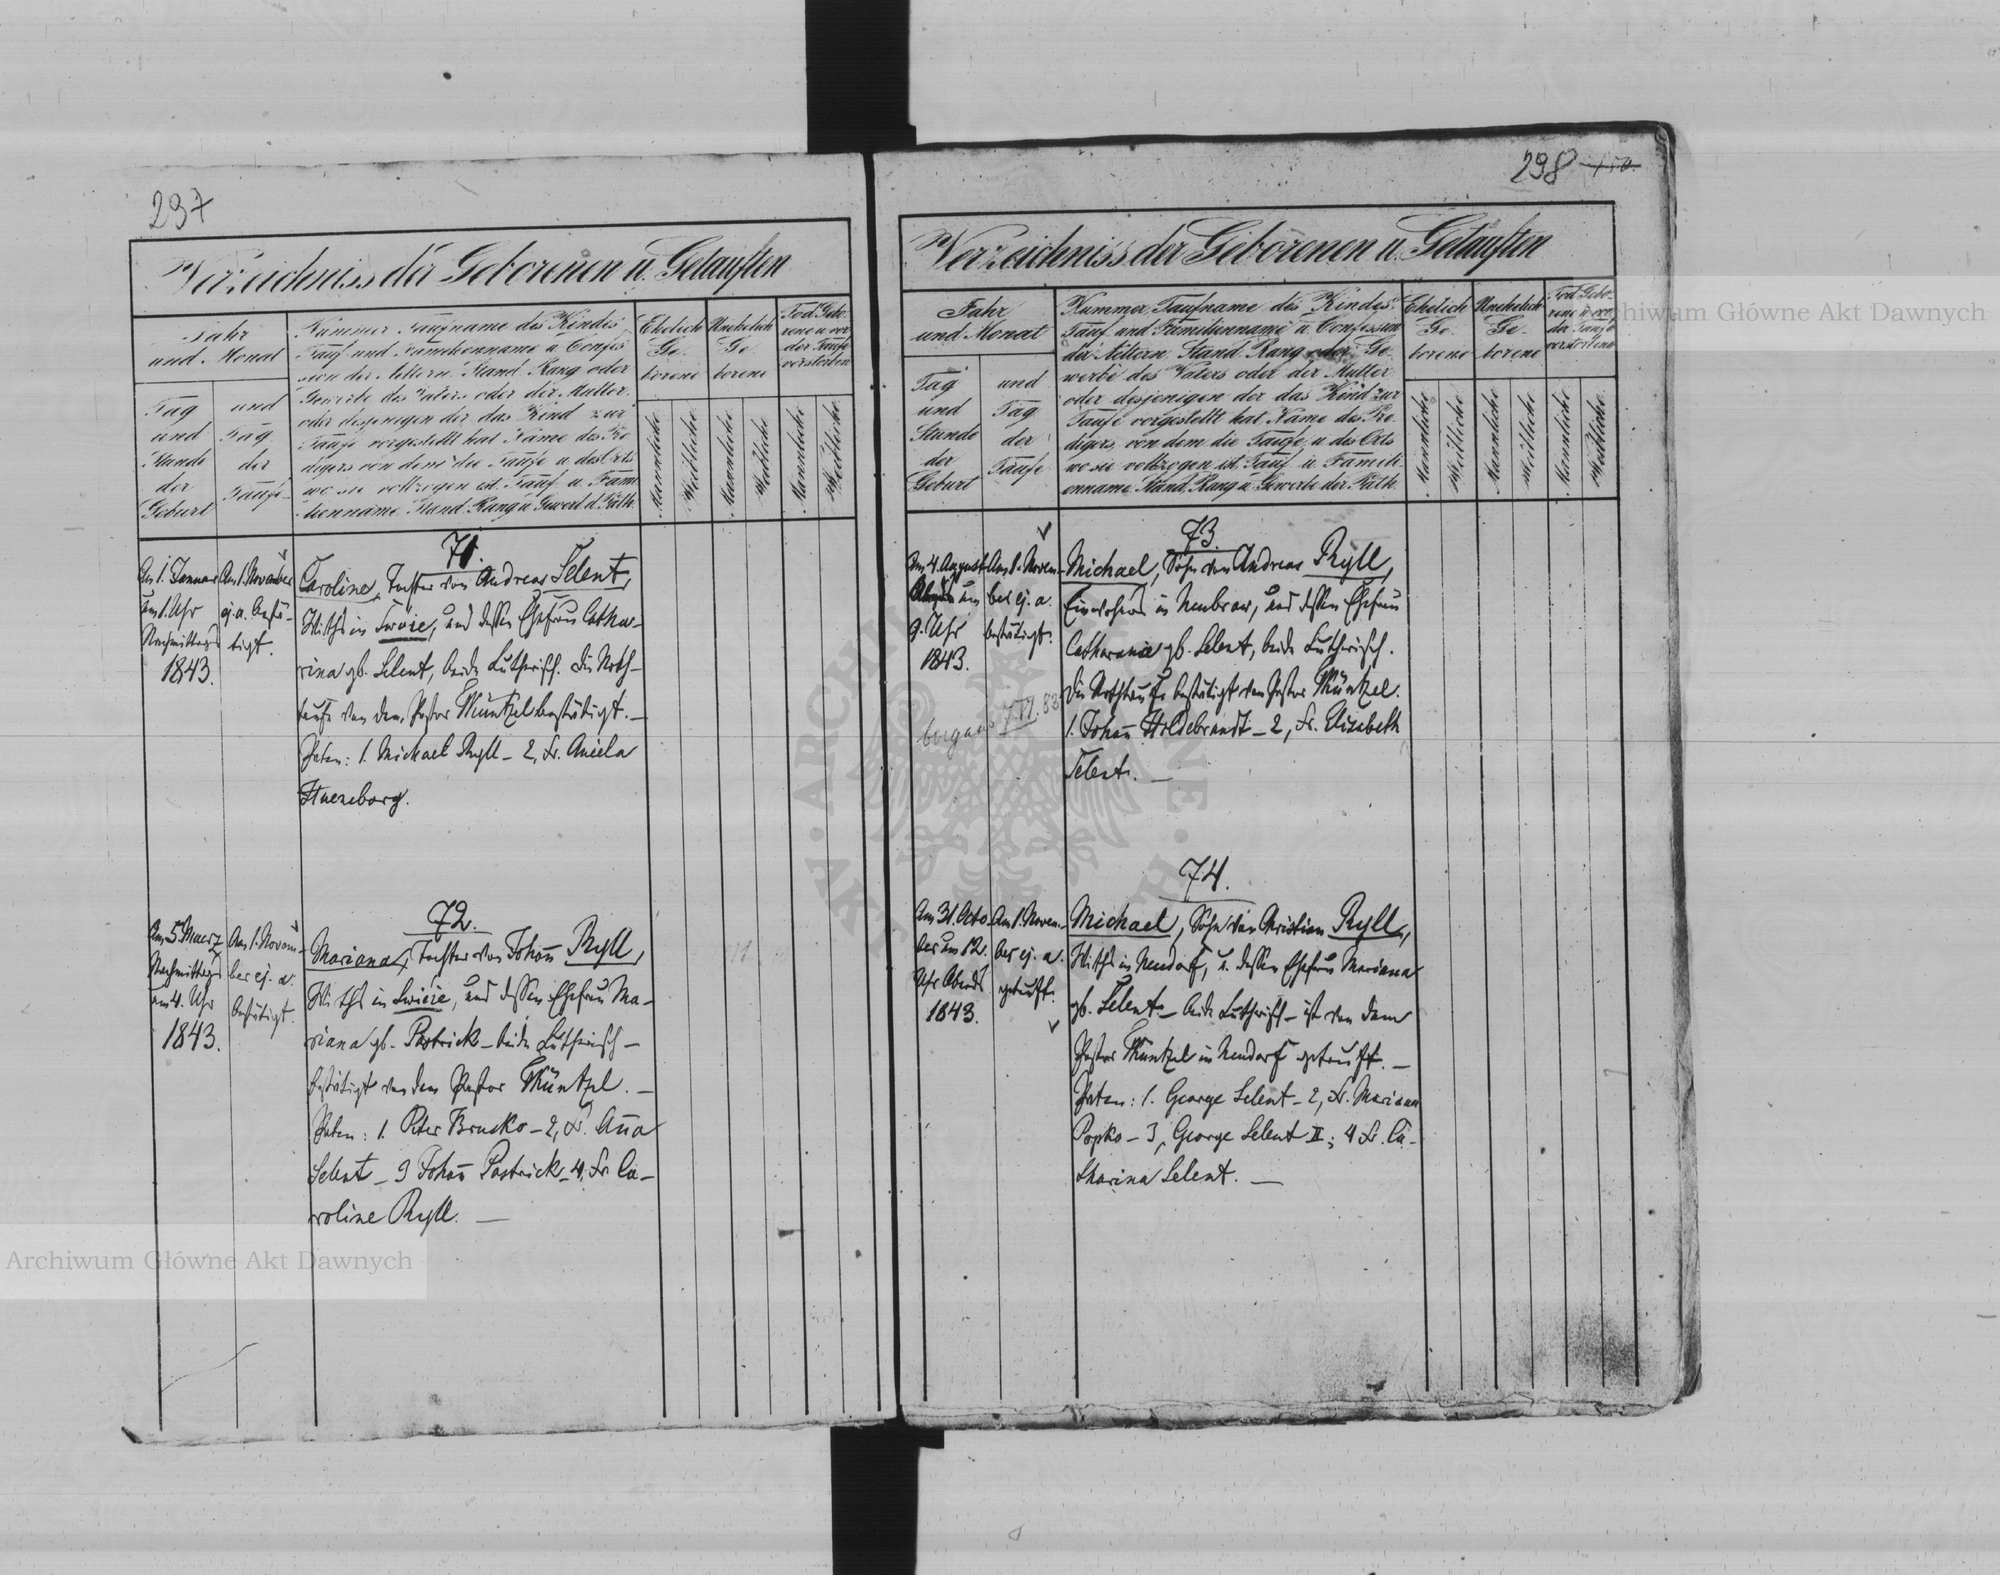 297
Verzeichniss der Geborenen u. Getauften
Jahr
und Monat
Tag
und
Stunde
der
Geburt
und
Tag
der
Taufe
Nummer Taufname des Kindes
Tauf und Familienname u Confes
sion der Aeltern. Stand Rang oder
Gewerbe des Vaters oder der Mutter
oder desjenigen der das Kind zur
Taufe vorgestellt hat Name des Pre
digers von dem die Taufe u. des Orts
wo sie vollzogen ist. Tauf u. Fami
lienname Stand Rang u Gewerb d. Path.
Ehelich
Ge
borene
Unehelich
Ge
borene
Tod Gebo
rene u vor
der Taufe
verstorben
Männliche
Weibliche
Männliche
Weibliche
Männliche
Weibliche
71.
Am 1. Januar
um 1. Uhr
Nachmittags
1843.
Am 1. November
ej. a. bestä-
tigt.
Caroline, Tochter von Andreas Selent,
Wirths in Swoie, und dessen Ehefrau Catha-
rina gb. Selent, beide Lutherisch. Die Noth-
taufe von dem Pastor Müntzel bestätigt. –
Paten: 1. Michael Ryll – 2, Fr. Aniela
72.
Am 5 Maerz
Nachmittags
um 4. Uhr
1843.
Am 1. Novem-
ber ej. a.
bestätigt.
Mariana, Tochter von Johañ Ryll,
Wirths in Swoie, und dessen Ehefrau Ma-
riana gb. Pastrick – beide Lutherisch –
bestätigt von dem Pastor Müntzel. –
Paten: 1. Peter Brucko – 2, Fr. Aña
Selent – 3 Johañ Pastrick – 4, Fr. Ca-
roline Ryll. –
298
Verzeichniss der Geborenen u. Getauften
Jahr
und Monat
Tag
und
Stunde
der
Geburt
und
Tag
der
Taufe
Nummer, Taufname des Kindes
Tauf und Familienname u. Confession
der Aeltern. Stand Rang oder Ge
werbe des Vaters oder der Mutter
oder desjenigen der das Kind zur
Taufe vorgestellt hat. Name des Pre
digers, von dem die Taufe u. des Orts
wo sie vollzogen ist, Tauf u. Famili
enname Stand, Rang u. Gewerbe der Path.
Ehelich
Ge
borene
Unehelich
Ge
borene
Tod Gebo
rene u vor
der Taufe
verstorbene
Männliche
Weibliche
Männliche
Weibliche
Männliche
Weibliche
73.
Am 4. August
Abends um
9. Uhr
1843.
Am 1. Novem-
ber ej. a.
bestätigt.
Michael, Sohn von Andreas Ryll,
Einwohners in Neubrow, und dessen Ehefrau
Catharina gb. Selent, beide Lutherisch.
Die Nothtaufe bestätigt von Pastor Müntzel.
1. Johañ Hildebrandt – 2, Fr. Elisabeth
Selent. –
74.
Am 31. Octo
ber um 12.
Uhr Abends
1843.
Am 1. Novem-
ber ej. a.
getauft.
Michael, Sohn von Christian Ryll,
Wirths in Neudorf, u. dessen Ehefrau Mariana
gb. Selent – beide Lutherisch – ist von dem
Pastor Müntzel in Neudorf getauft. –
Paten: 1. George Selent – 2, Fr. Mariana
Popko – 3, George Selent II; 4 Fr. Ca-
tharina Selent. –
Archiwum Główne Akt Dawnych
Archiwum Główne Akt Dawnych